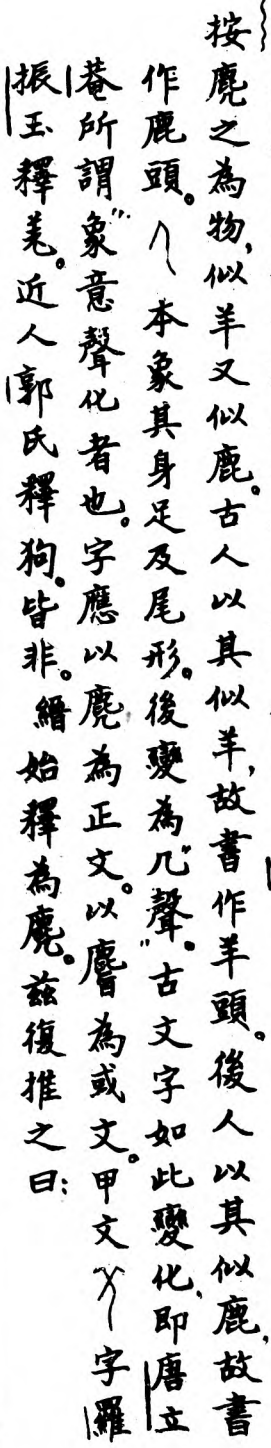 按麂之為物,似羊又似鹿。古人以其似羊,故書作羊頭。後人以其似鹿,故書
作鹿頭。乀本象其身足及尾形。後變為“几”聲。古文字如此變化,即唐立
菴所謂“象意聲化者也。字應以麂為正文。以麔為或文。甲文字羅
振玉釋羌。近人郭氏釋狗。皆非。縉始釋為麂。茲復推之曰: